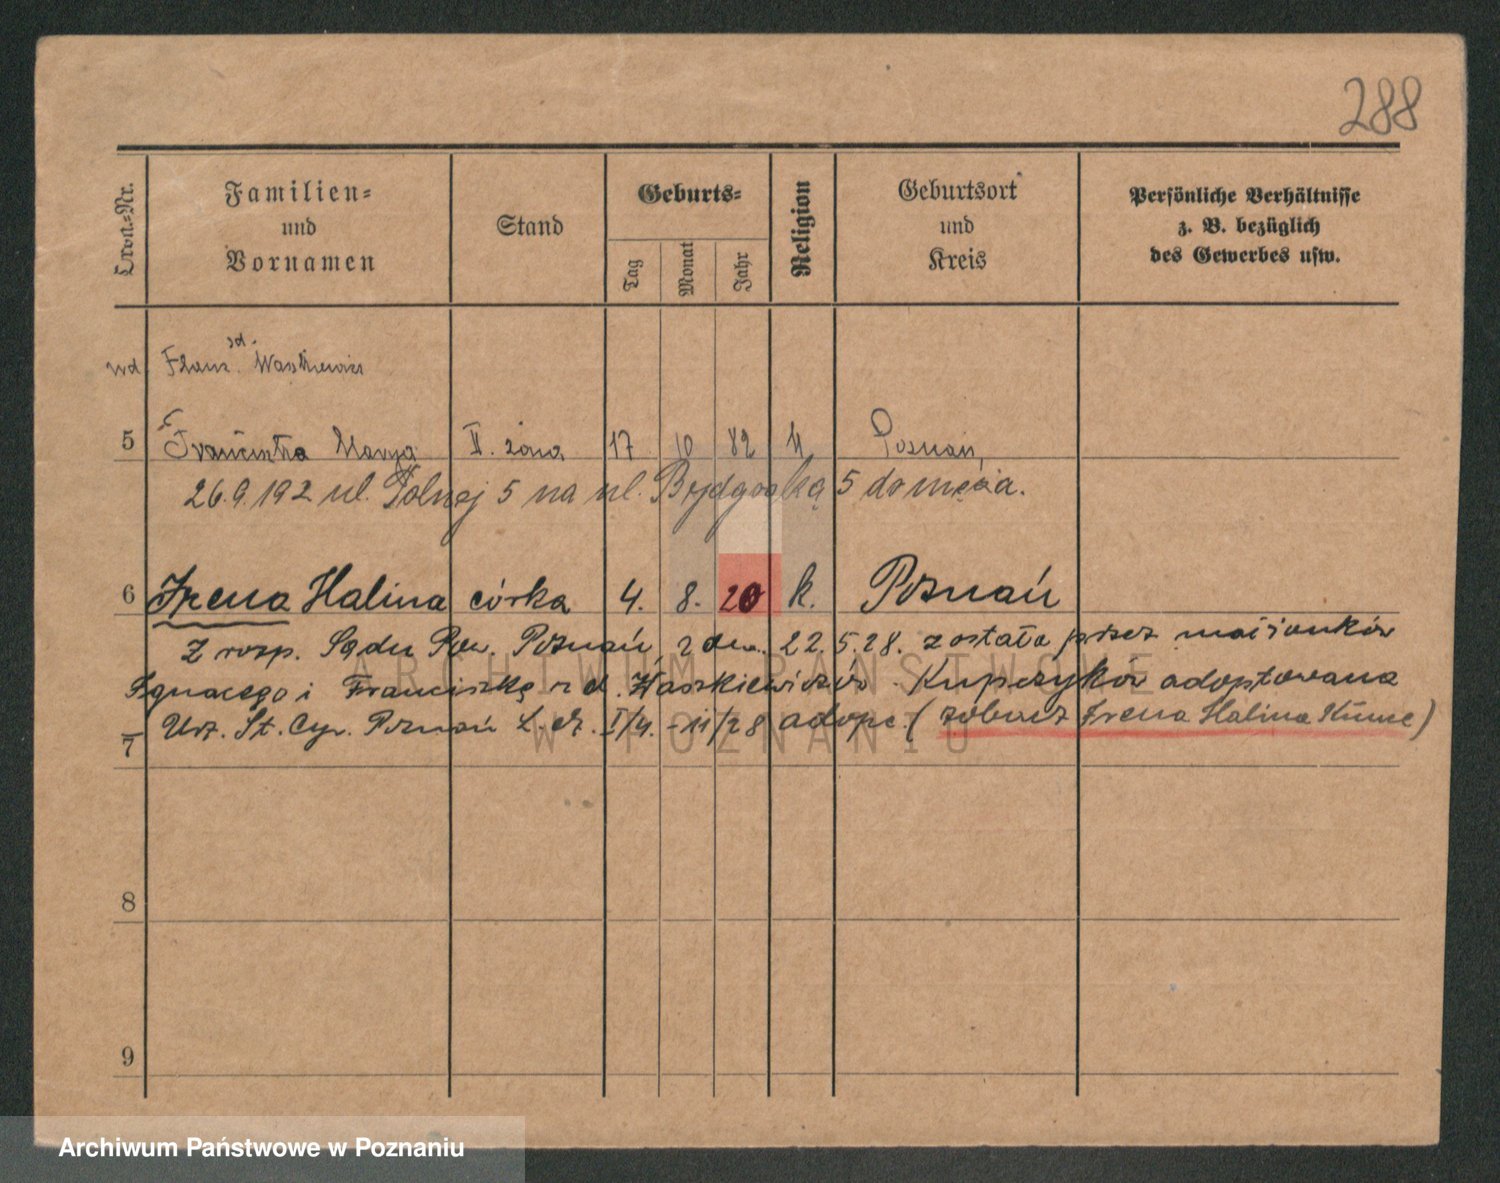 288
Ordn.-Nr.
Familien-
und
Vornamen
Stand
Geburts-
Tag
Monat
Jahr
Religion
Geburtsort
und
Kreis
Persönliche Verhältnisse
z. B. bezüglich
des Gewerbes usw.
zd.
wd. Franc. Waszkiewicz
5 Franciszka Marya II. żona 17 10 82 k Poznań,
26.9.192 ul. Polnej 5 na ul. Bydgoską 5 do męża.
6 Irena Halina córka 4. 8. 20 k. Poznań
Z rozp. Sądu Pow. Poznań, z dn. 22.5.28. została przez małżonków
Ignacego i Franciszkę z d. Waszkiewiczów Kupczyków adoptowana
Urz. St. Cyw. Poznań L. dz. I/4. - 11/28 adopc. (zobacz Irena Halina)
7
8
9
ARCHIWUM PAŃSTWOWE
W POZNANIU
Archiwum Państwowe w Poznaniu